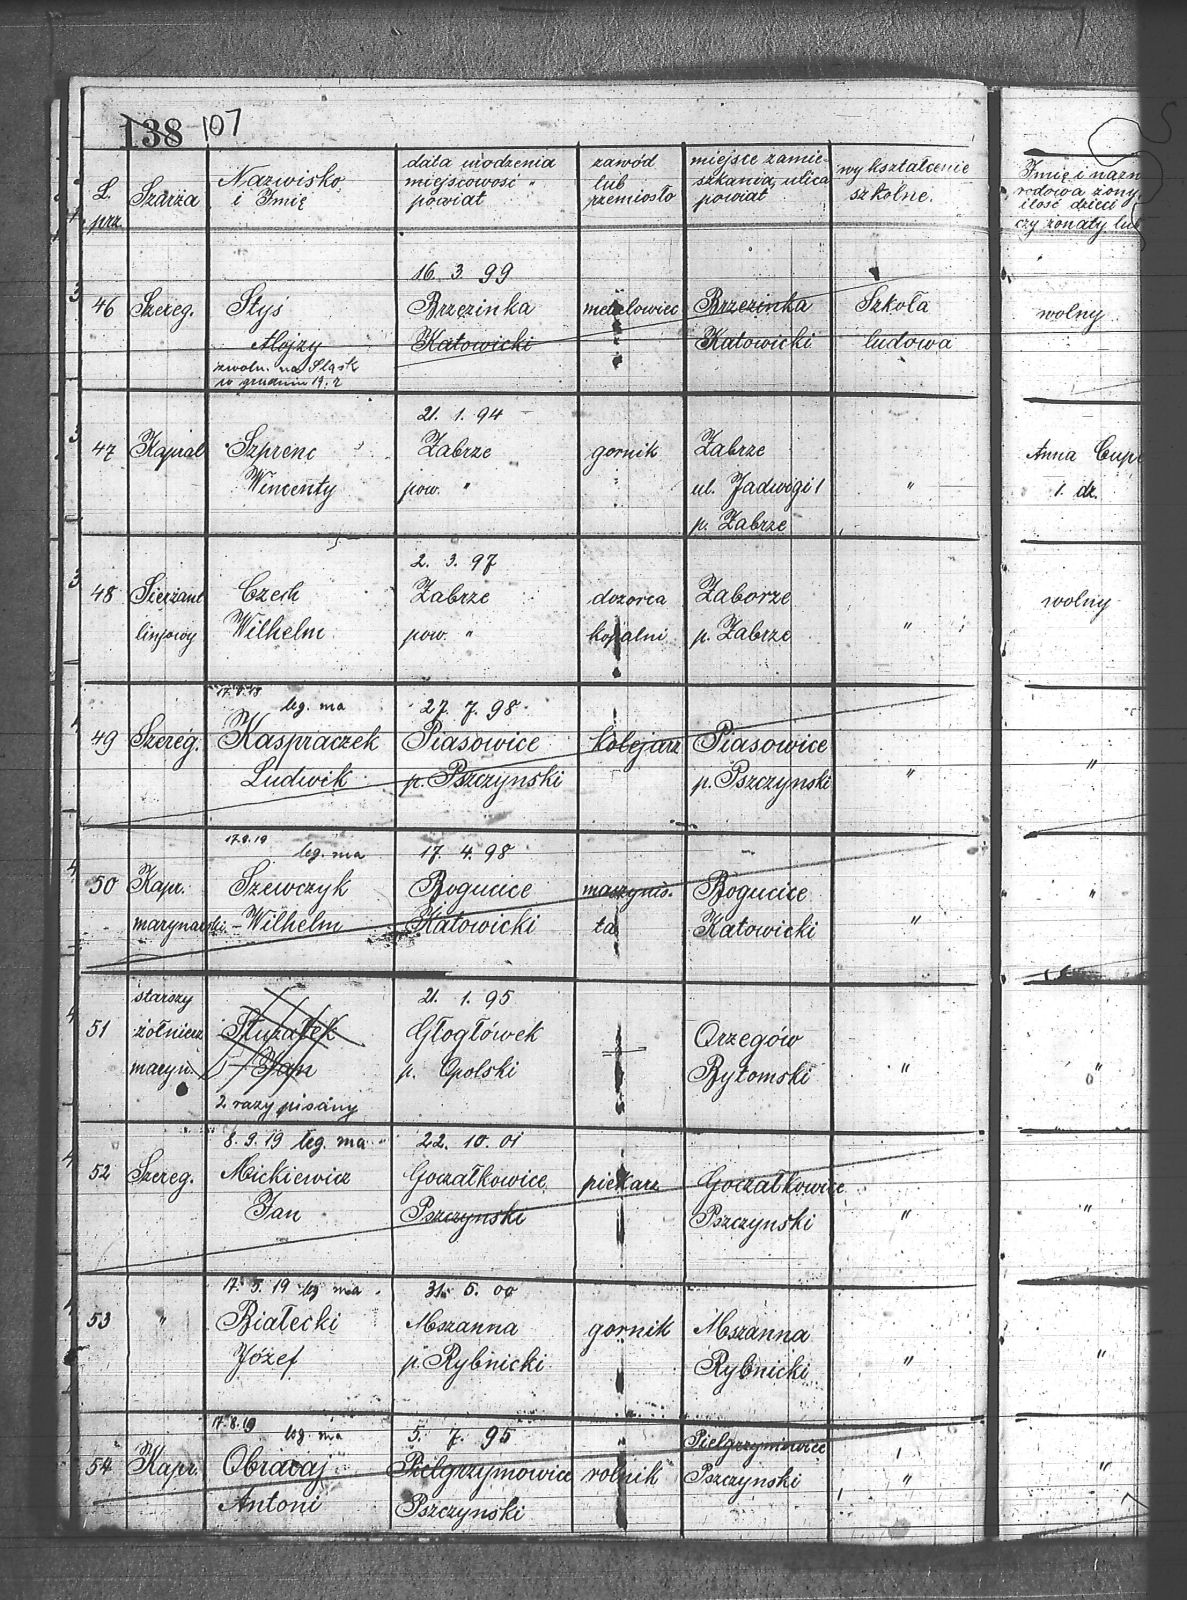 138 107
L. prz.
Szarża
Nazwisko
i Imię
data urodzenia
miejscowość "
powiat
zawód
lub
rzemiosło
miejsce zamie-
szkania, ulica
powiat
wykształcenie
szkolne.
Imię i nazw
rodowa żony
ilość dzieci
czy żonaty lub
46 Szereg.
Styś
Alojzy
zwoln. na Śląsk
w grudniu 19. r
16. 3. 99
Brzezinka
Katowicki
metalowiec
Brzezinka
Katowicki
Szkoła
ludowa
wolny
47 Kapral
Szprenc
Wincenty
21. 1. 94
Zabrze
pow. "
gornik
Zabrze
ul. Jadwigi 1
p. Zabrze
"
Anna Cup
1. dz.
48 Sierżant
linjowy
Czech
Wilhelm
2. 3. 97
Zabrze
pow. "
dozorca
kopalni
Zaborze
p. Zabrze
"
wolny
49 Szereg.
leg. ma
Kaspraczek
Ludwik
27. 7. 98.
Piasowice
p. Pszczynski
kolejarz
Piasowice
p. Pszczynski
"
"
50 Kapr.
marynarski
17.9.19 leg. ma
Szewczyk
Wilhelm
17. 4. 98
Bogucice
Katowicki
maszynis-
ta
Bogucice
Katowicki
"
"
51 starszy
żołnierz
maryn.
Stuzałek
Jan
2 razy pisany
21. 1. 95
Głogłówek
p. Opolski
Orzegów
Bytomski
"
"
52 Szereg.
8. 9. 19 leg. ma
Mickiewicz
Jan
22. 10. 01
Goczałkowice
Pszczynski
piekarz
Goczałkowice
Pszczynski
"
"
53 "
17. 9. 19 leg ma
Białecki
Józef
31. 5. 00
Mszanna
p. Rybnicki
gornik
Mszanna
Rybnicki
"
"
54 Kapr.
17.8.19 leg. ma
Obracaj
Antoni
5. 7. 95
Pielgrzymowice
Pszczynski
rolnik
Pielgrzymowice
Pszczynski
"
"